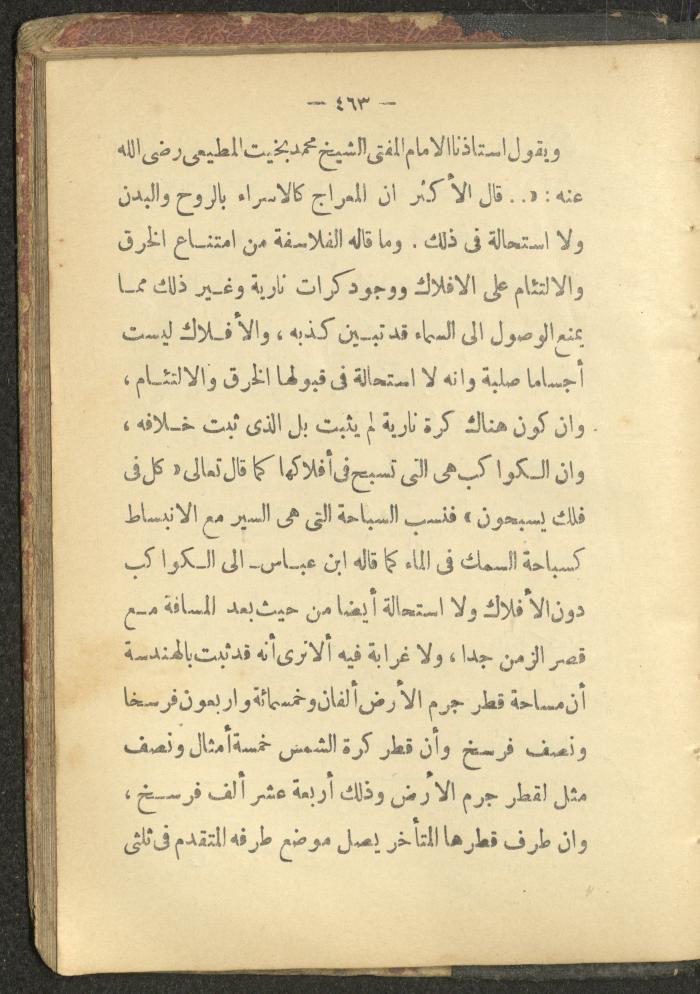 — ٤٦٣ —
ويقول استاذنا الامام المفتى الشيخ محمد بخيت المطيعى رضى الله
عنه : « . . قال الأكثر ان المعراج كالاسراء بالروح والبدن
ولا استحالة فى ذلك . وما قاله الفلاسفة من امتناع الخرق
والالتئام على الافلاك ووجود كرات نارية وغير ذلك مما
يمنع الوصول الى السماء قد تبين كذبه ، والأفلاك ليست
أجساما صلبة وانه لا استحالة فى قبولها الخرق والالتئام ،
وان كون هناك كرة نارية لم يثبت بل الذى ثبت خلافه ،
وان الكواكب هى التى تسبح فى أفلاكها كما قال تعالى « كل فى
فلك يسبحون » فنسب السباحة التى هى السير مع الانبساط
كسباحة السمك فى الماء كما قاله ابن عباس ـ الى الكواكب
دون الأفلاك ولا استحالة أيضا من حيث بعد المسافة مع
قصر الزمن جدا ، ولا غرابة فيه ألا ترى أنه قد ثبت بالهندسة
أن مساحة قطر جرم الأرض ألفان وخمسمائة واربعون فرسخا
ونصف فرسخ وأن قطر كرة الشمس خمسة أمثال ونصف
مثل لقطر جرم الارض وذلك أربعة عشر ألف فرسخ ،
وان طرف قطرها المتأخر يصل موضع طرفه المتقدم فى ثلثى